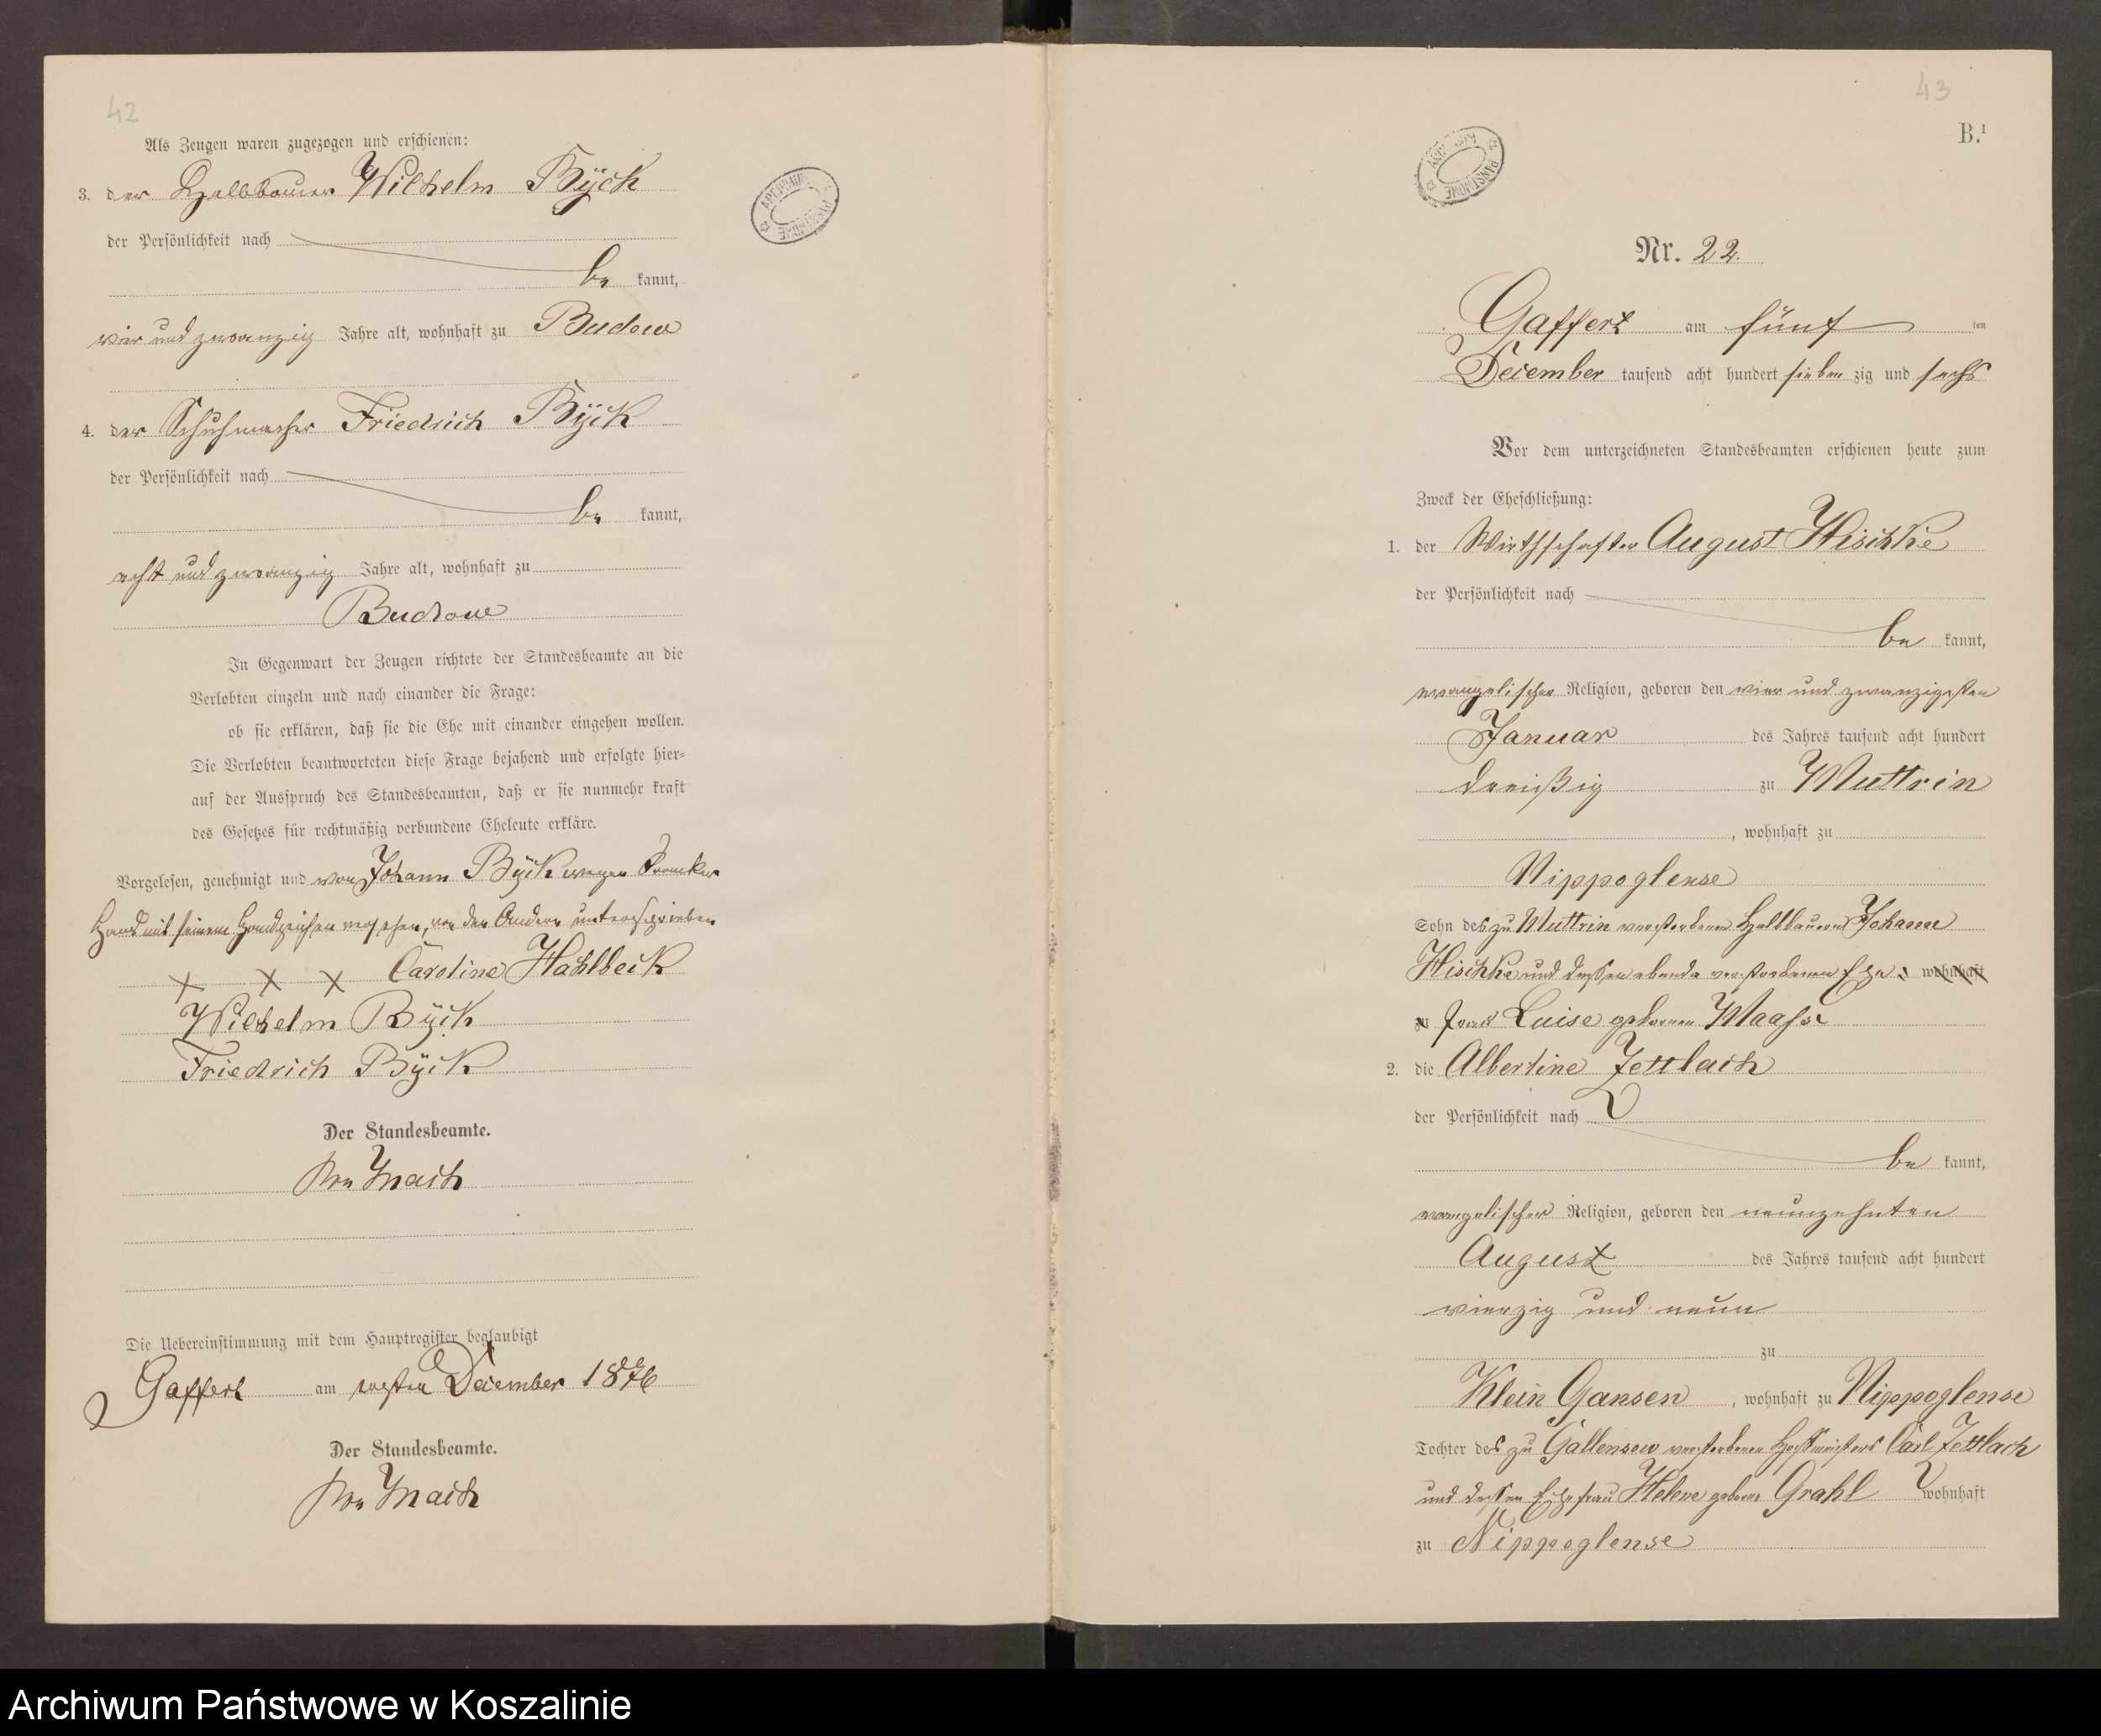 42
Als Zeugen waren zugezogen und erschienen:
3. der Halbbauer Wilhelm Byck
der Persönlichkeit nach
be kannt,
vier und zwanzig Jahre alt, wohnhaft zu Budow
4. der Schuhmacher Friedrich Byck
der Persönlichkeit nach
be kannt,
acht und zwanzig Jahre alt, wohnhaft zu
Budow
In Gegenwart der Zeugen richtete der Standesbeamte an die
Verlobten einzeln und nach einander die Frage:
ob sie erklären, daß sie die Ehe mit einander eingehen wollen.
Die Verlobten beantworteten diese Frage bejahend und erfolgte hier-
auf der Ausspruch des Standesbeamten, daß er sie nunmehr kraft
des Gesetzes für rechtmäßig verbundene Eheleute erkläre.
Vorgelesen, genehmigt und von Johann Byck wegen kranker
Hand mit seinem Handzeichen versehen, von den Andern unterschrieben
x x x Caroline Hahlbeck
Wilhelm Byck
Friedrich Byck
Der Standesbeamte.
von Mach
Die Uebereinstimmung mit dem Hauptregister beglaubigt
Gaffert am ersten December 1876
Der Standesbeamte.
von Mach
43
B.¹
Nr. 22.
Gaffert am fünf ten
December tausend acht hundert sieben zig und sechs
Vor dem unterzeichneten Standesbeamten erschienen heute zum
Zweck der Eheschließung:
1. der Wirthschafter August Hischke
der Persönlichkeit nach
be kannt,
evangelischer Religion, geboren den vier und zwanzigsten
Januar des Jahres tausend acht hundert
dreißig zu Muttrin
, wohnhaft zu
Nippoglense
Sohn des zu Muttrin verstorbenen Halbbauern Johann
Hischke und dessen ebenda verstorbenen Ehe- wohnhaft
zu frau Luise geborenen Maass
2. die Albertine Zettlach
der Persönlichkeit nach
be kannt,
evangelischer Religion, geboren den neunzehnten
August des Jahres tausend acht hundert
vierzig und neun
zu
Klein Gansen, wohnhaft zu Nippoglense
Tochter des zu Gallensow verstorbenen Hofmeisters Carl Zettlach
und dessen Ehefrau Helene geborne Grahl wohnhaft
zu Nippoglense
Archiwum Państwowe w Koszalinie